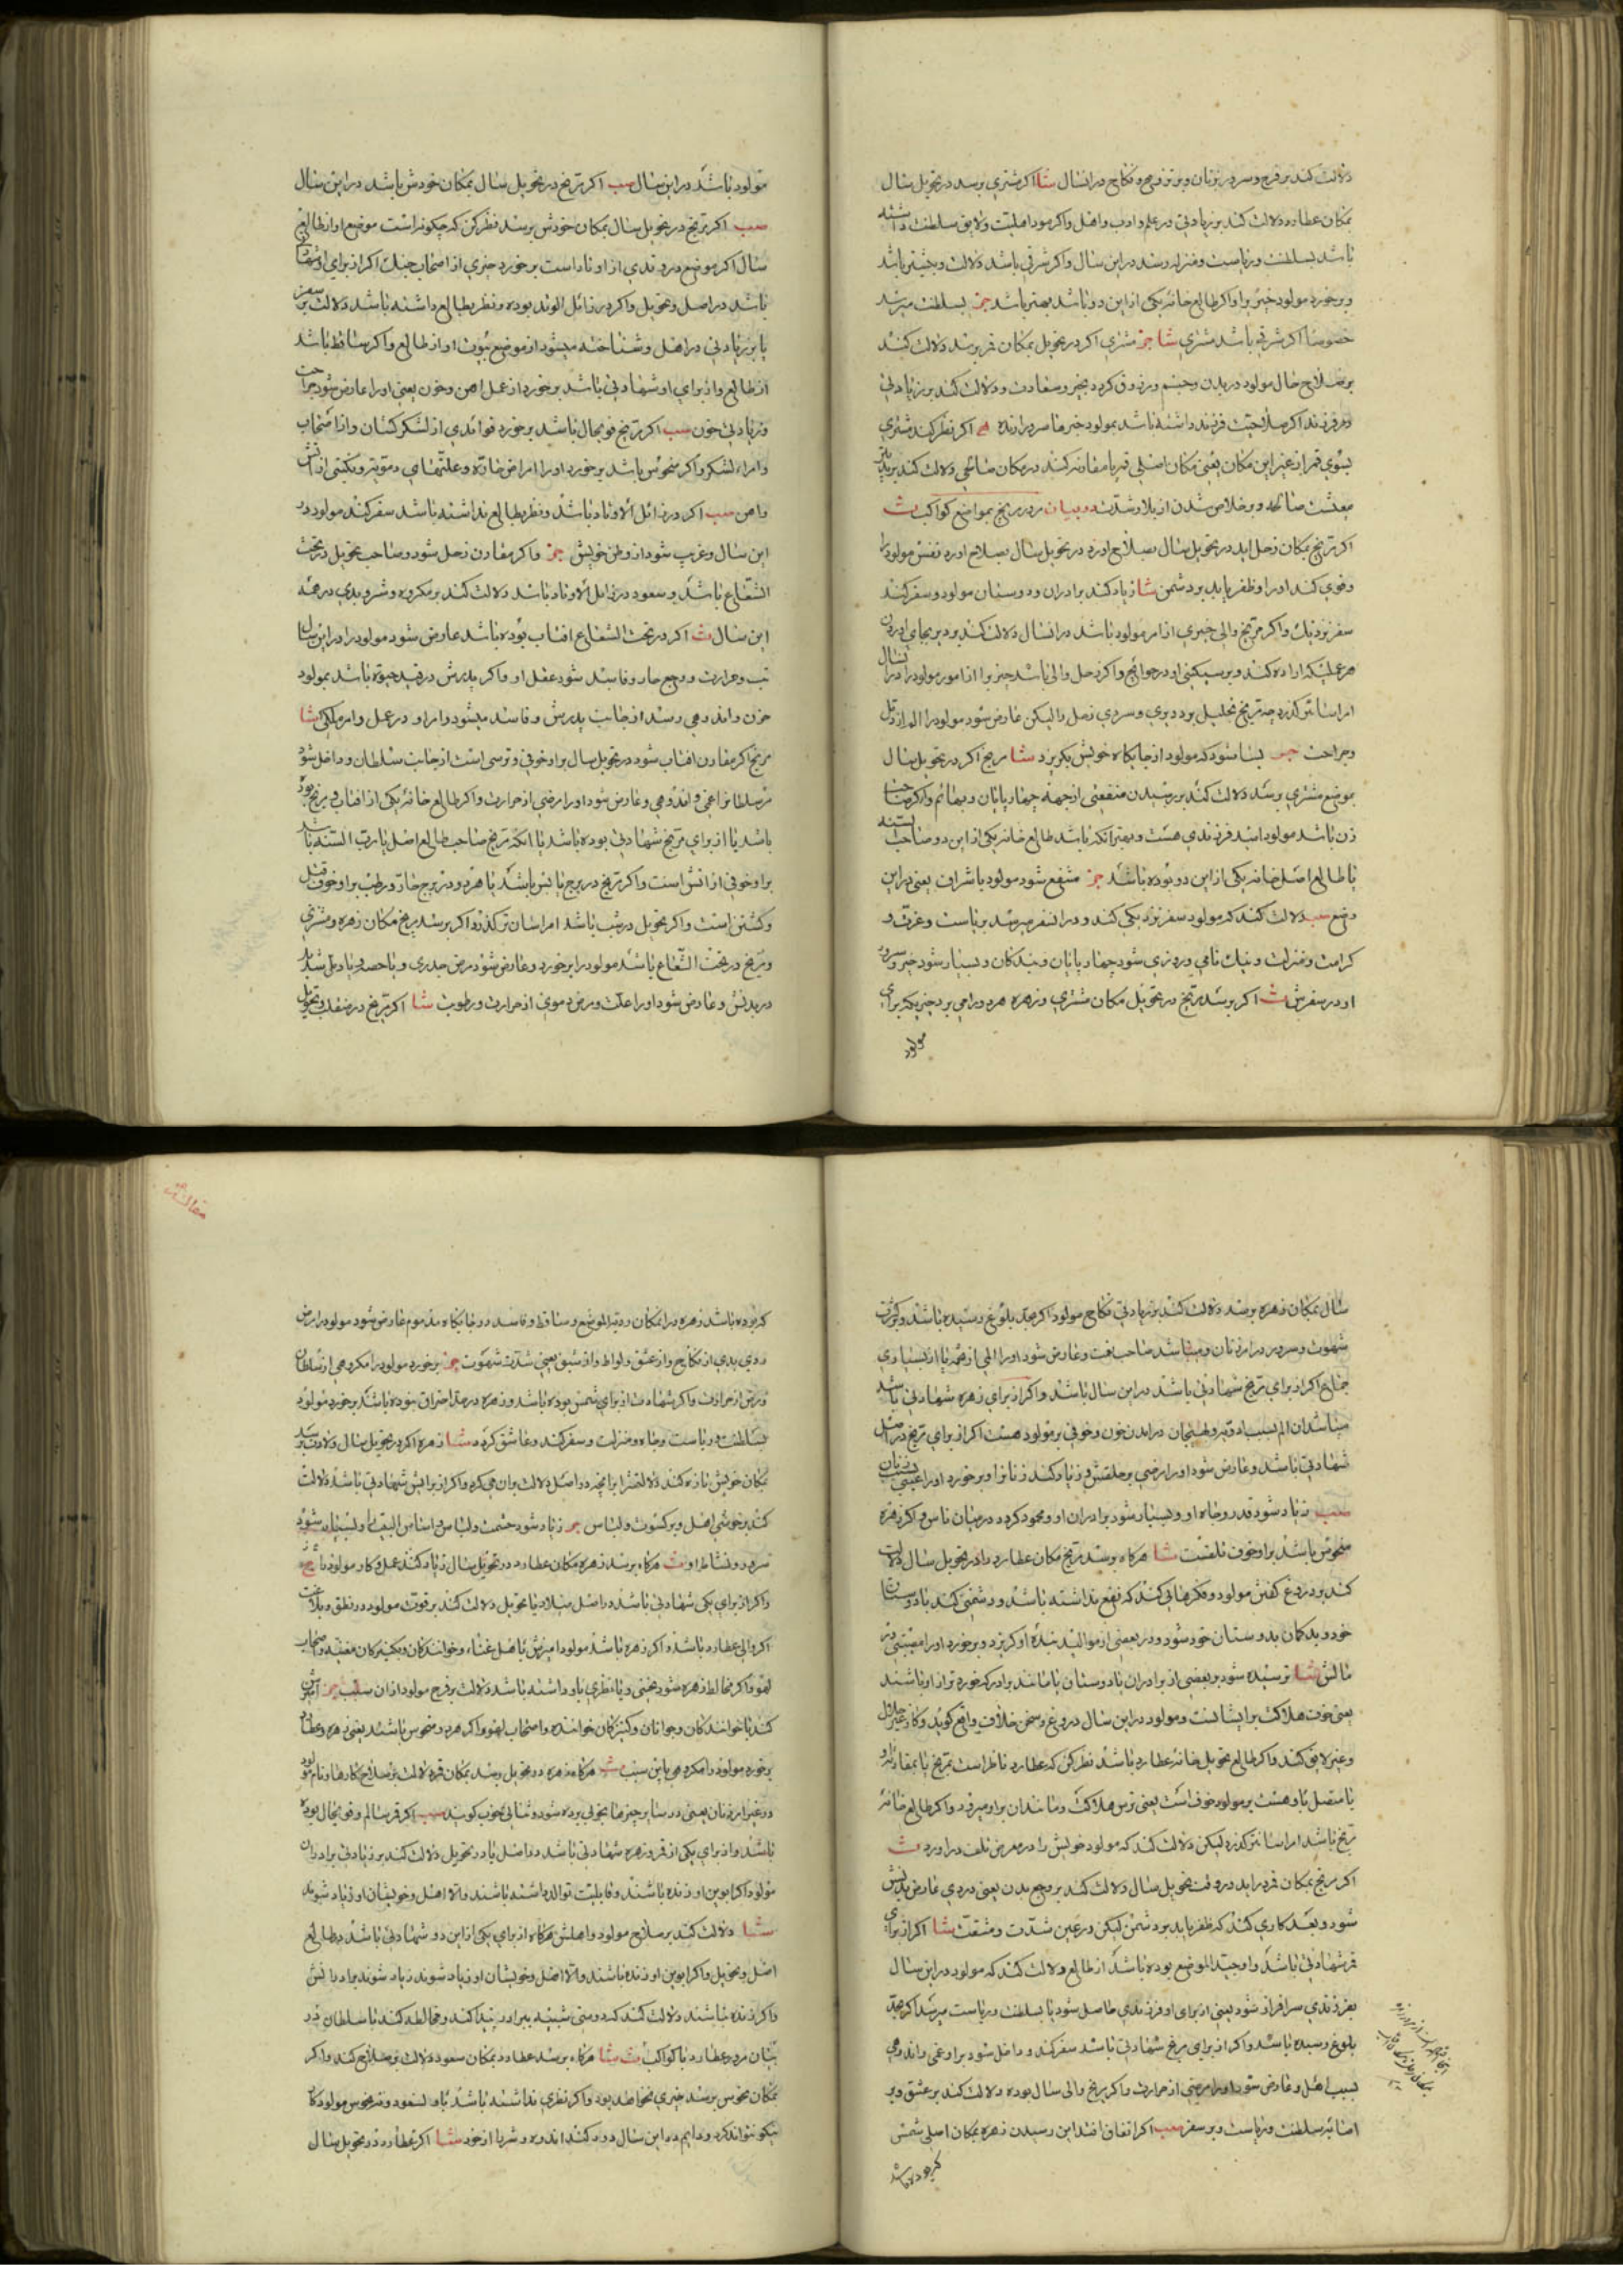 دلالت کند بر فرح و سرور بزنان و بر تزویج و نکاح در انسال شا اکر مشتری برسد در تحویل سال
بمکان عطارد دلالت کند بزیادتی در علم و ادب و اهل واکر مود اهلیت ولایق سلطنت داشته
باشد بسلطنت و ریاست و منزله رسد در این سال واکر شرقی باشد دلالت
و برخورد مولود خیر را واکر طالع خانه یکی از این دو باشد بهتر باشد جز بسلطنت میرسد
خصوصا اکر شرقی باشد مشتری شا جز مشتری اکر در تحویل بمکان قمر برسد دلالت کند
بر صلاح حال مولود در بدن و جسم و رزق کردد بخیر و سعادت و دلالت کند بر زیادتی
در فرزند اکر صلاحیت فرزند داشته باشد بمولود خیر اکر نظر کند مشتری
بسوی قمر از غیر این مکان یعنی مکان اصلی قمر یا مقارنه کند در مکان صالحی دلالت کند بر
معیشت صالحه و بر خلاص شدن از بلا و شدت در بیان مرور مریخ بمواضع کواکب ث
اکر مریخ بمکان زحل اید در تحویل سال بصلاح اورد نفس مولود را
و قوی کند او را و ظفر یابد بر دشمن شا زیاد کند برادران و دوستان مولود و سفر کند
سفر نزدیک واکر مریخ والی چیزی از امر مولود باشد در انسال دلالت کند
هر عملیکه اراده کند و بر سبکی او در حوائج واکر زحل والی باشد چیزی را از امور مولود را در انسال
امر اسانتر کذرد چه مریخ تحلیل برد و بری و سردی زحل را لیکن عارض شود مولود را الم از دمل
و جراحت جز بسا شود که مولود از جایکاه خویش بکریزد شا مریخ اکر در تحویل سال
بموضع مشتری برسد دلالت کند بر رسیدن منفعتی از جهة چهارپایان و بهائم واکر صاحب
زن باشد مولود امید فرزندی هست و بهتر انکه باشد طالع خانه یکی از این دو صاحب السنه
یا طالع اصل خانه یکی از این دو بوده باشد جز منتفع شود مولود باشراف یعنی در این
وضع سب دلالت کند که مولود سفر نزدیکی کند و در انسفر میرسد بریاست و عزت و
کرامت و منزلت و نیک نامی و روزی شود چهارپایان و بندکان و بسیار شود خیر و سرور
او در سفرش ث اکر برسد مریخ در تحویل مکان مشتری و زهره هر دو را می برد چیزیکه برای
مولود
مولود باشد در این سال سب اکر مریخ در تحویل سال بمکان خودش باشد در این سال
سب اکر مریخ در تحویل سال بمکان خودش برسد نظر کن که چکونه است موضع او از طالع
سال اکر موضع وتدی از اوتاد است برخورد خیری از اصحاب جنک اکر از برای او شهادت
باشد در اصل و تحویل واکر در زائل الوتد بوده و نظر بطالع داشته باشد دلالت بر سفر
یا بر زیادتی در اهل و شناخته میشود از موضع بیوت او از طالع واکر ساقط باشد
از طالع و از برای او شهادتی باشد برخورد از عمل اهن و خون یعنی او را عارض شود جراحت
و زیادتی خون سب اکر مریخ قویحال باشد برخورد فوائدی از لشکرکشان و از اصحاب
و امراء لشکر واکر منحوس باشد برخورد او را امراض حاده و علتهای دمویه و نکبتی از اتش
و اهن سب اکر در زائل الاوتاد باشد و نظر بطالع نداشته باشد سفر کند مولود در
این سال و غریب شود از وطن خویش جز واکر مقارن زحل شود و صاحب تحویل در تحت
الشعاع باشد و سعود در زائل الاوتاد باشد دلالت کند بر مکروه و شر و بدی در همه
این سال ث اکر در تحت الشعاع افتاب بوده باشد عارض شود مولود را در این سال
تب و حرارت و وجع حار و فاسد شود عقل او واکر پدرش در قید حیوة باشد بمولود
حزن و اندوهی رسد از جانب پدرش و فاسد میشود امر او در عمل و امر ملکی شا
مریخ اکر مقارن افتاب شود در تحویل سال بر او خوفی و ترسی است از جانب سلطان و داخل شود
بر سلطان غمی و اندوهی و عارض شود او را مرضی از حرارت واکر طالع خانه یکی از افتاب و مریخ بود
باشد یا از برای مریخ شهادتی بوده باشد یا انکه مریخ صاحب طالع اصل یا رب السنه باشد
بر او خوفی از اتش است واکر مریخ در برج یابس باشد یا هر دو در برج حار و رطب بر او خوف قتل
و کشتن است واکر تحویل در شب باشد امر اسان تر کذرد اکر برسد مریخ مکان زهره و مشتری
و مریخ در تحت الشعاع باشد مولود را برخورد و عارض شود مرض جدری و یا حصبه و یا دمل
در بدنش و عارض شود او را علت و مرض دموی از حرارت و رطوبت شا اکر مریخ در منقلب تحویل
سال بمکان زهره برسد دلالت کند بزیادتی نکاح مولود اکر بحد بلوغ رسیده باشد و بکثرت
شهوت و سرور در امر زنان و شا
جماع اکر از برای مریخ شهادتی باشد در این سال باشد واکر از برای زهره شهادتی باشد
شهادتی باشد و عارض شود او را مرضی بر حلقش و زیاد کند زنا را و برخورد او را
سب زیاد شود قدر و جاه او و بسیار شود برادران او و محمود کردد در میان ناس واکر زهره
منحوس باشد بر او خوف تلفست شا هرکاه برسد مریخ مکان عطارد را در تحویل سال دلالت
کند بر دروغ کفتن مولود و مکرهائی کند که نفع نداشته باشد و دشمنی کند با دوستان
خود و بدکمان بدوستان خود شود و در بعضی از موالید بندهٔ او کریزد و برخورد او را مصیبتی در
مالش شا ترسیده شود بر بعضی از برادران یا دوستان یا مانند برادر که خورد تر از او باشند
یعنی خوف هلاکت بر ایشانست و مولود در این سال دروغ و سخن خلاف واقع کوید و کار غیر حلال
و غیر لایق کند واکر طالع تحویل خانه عطارد باشد نظر کن که عطارد ناظر است بمریخ یا مقارن او
یا متصل باو هست بر مولود خوف است یعنی ترس هلاکت و مانند ان بر او میرود واکر طالع خانه
مریخ باشد امر اسانتر کذرد لیکن دلالت کند که مولود خویش را در معرض تلف در اورد ث
اکر مریخ بمکان قمر در اید در وقت تحویل سال دلالت کند بر وجع بدن یعنی دردی عارض بدنش
شود و بعد کاری کند که ظفر یابد بر دشمن لیکن در عین شدت و مشقت شا اکر از برای
قمر شهادتی باشد و او جید الموضع بوده باشد از طالع دلالت کند که مولود در این سال
بفرزندی سرافراز شود یعنی از برای او فرزندی حاصل شود یا بسلطنت و ریاست میرسد اکر بحد
بلوغ رسیده باشد واکر از برای مریخ شهادتی باشد سفر کند و داخل شود بر او غمی و اندوهی
بسبب اهل و عارض شود او را مرضی از حرارت واکر مریخ والی سال بوده دلالت کند بر عشق و بر
اصابه سلطنت و ریاست و بر سفر سب اکر اتفاق افتد این رسیدن زهره بمکان اصلی شمس
که بوده باشد
مقالة
که بوده باشد زهره در انمکان ردیة الموضع و ساقط و فاسد در جایکاه مذموم عارض شود مولود را مرض
ردی بدی از نکاح و از عشق و لواط و از شبق یعنی شدت شهوت جز برخورد مولود را مکروهی از سلطان
و مرض از حرارت واکر شهادت از برای شمس بوده باشد و زهره در حد احتراق نبوده باشد برخورد مولود
بسلطنت و ریاست و جاه و منزلت و سفر کند و عاشق کردد شا زهره اکر در تحویل سال ولادت برسد
مکان خویش تازه کند دلالتش را برانچه در اصل دلالت بران می کرد واکر از برایش شهادتی باشد دلالت
کند بر خوشی اهل و بر کسوت و لباس جز زیاد شود حشمت و لباس و
سرور و نشاط او ث هرکاه برسد زهره مکان عطارد در تحویل سال زیاد کند عمل و کار مولود
واکر از برای یکی شهادتی باشد در اصل میلاد یا تحویل دلالت کند بر قوت مولود در نطق و بلاغت
اکر والی عطارد باشد واکر زهره باشد مولود امیزش باهل غناء و خوانندکان و بکنیزکان مغنیه و اصحاب
لهو واکر مخالط زهره شود نحسی و یا نظری باو داشته باشد دلالت بر فرح مولود از ان سبب جز امیزش
کند با خوانندکان و جوانان و کنیزکان خواننده و اصحاب لهو واکر هر دو منحوس باشند یعنی زهره و عطارد
برخورد مولود را مکروهی باین سبب ث هرکاه زهره در تحویل رسد بمکان قمر دلالت بر صلاح کارها و نام مولود
در غیر امر زنان یعنی در سایر چیزها بخوبی برده شود و ثنائی خوب کویند سب اکر قمر سالم و قویحال بوده
باشد و از برای یکی از قمر و زهره شهادتی باشد در اصل یا در تحویل دلالت کند بر زیادتی برادران
مولود اکر ابوین او زنده باشند و قابلیت توالد داشته باشند و الا اهل و خویشان او زیاد شوند
شا دلالت کند بر صلاح مولود و اهلش هرکاه از برای یکی از این دو شهادتی باشد بطالع
اصل و تحویل واکر ابوین او زنده باشند و الا اهل و خویشان او زیاد شوند زیاد شوند برادرانش
واکر زنده نباشند دلالت کند که دوستی شبیه ببرادر پیدا کند و مخالطه کند با سلطان در
بیان مرور عطارد با کواکب ث شا هرکاه برسد عطارد بمکان سعود دلالت بر صلاح کند واکر
بمکان نحوس برسد خیری نخواهد بود واکر نظری نداشته باشد باو نه سعود و نه نحوس مولود کار
نیکو نتواند کرد و دایم در این سال دور کند اندوه و شر را از خود شا اکر عطارد در تحویل سال